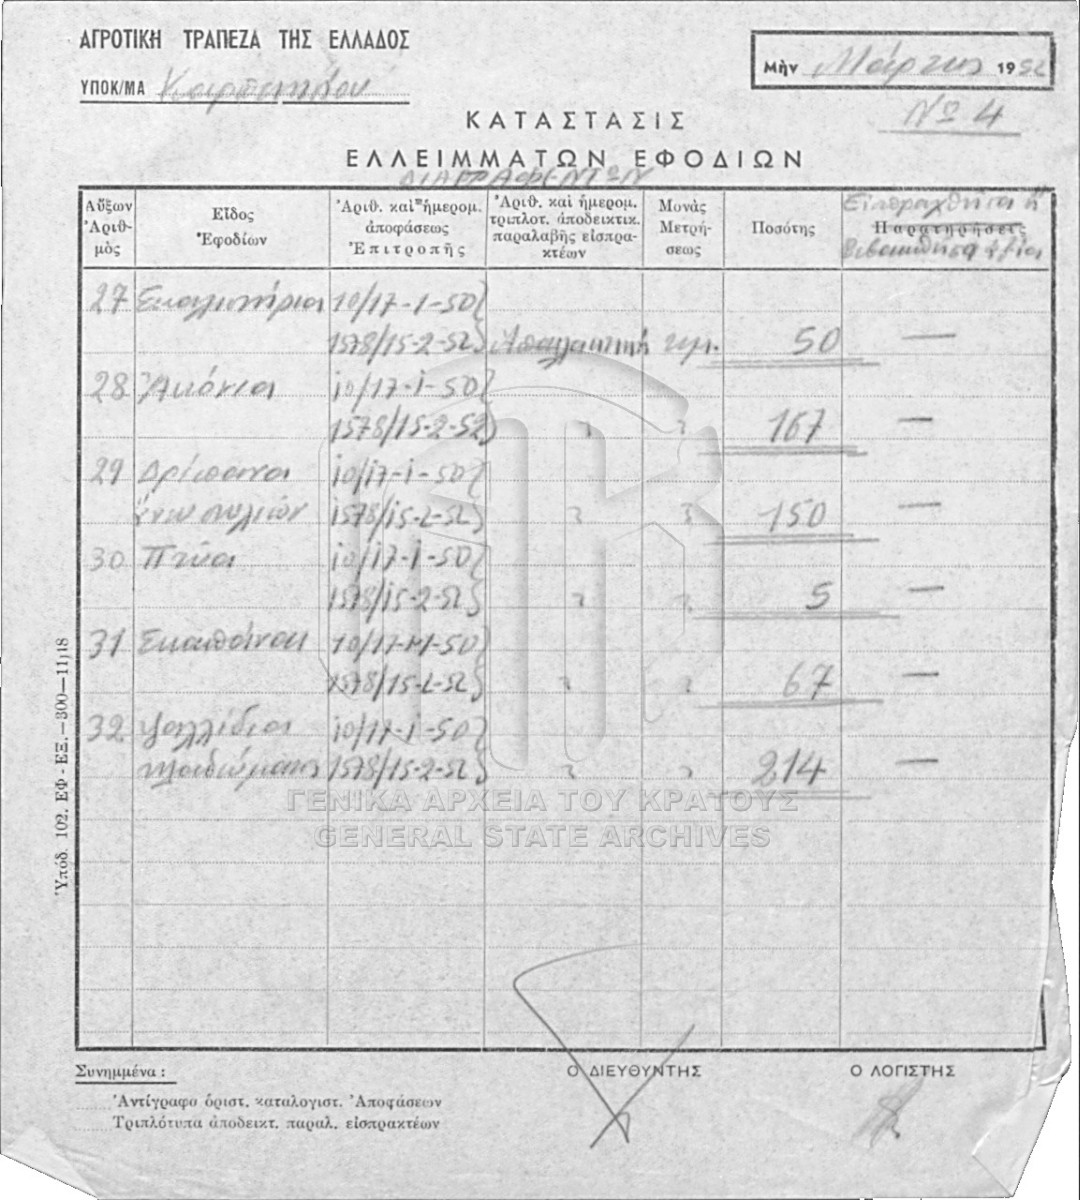 ΑΓΡΟΤΙΚΗ ΤΡΑΠΕΖΑ ΤΗΣ ΕΛΛΑΔΟΣ
ΥΠΟΚ/ΜΑ Καρπενησίου
Μὴν Μάρτιος 1952
Νο 4
ΚΑΤΑΣΤΑΣΙΣ
ΕΛΛΕΙΜΜΑΤΩΝ ΕΦΟΔΙΩΝ
ΔΙΑΓΡΑΦΕΝΤΩΝ
Αὔξων Ἀριθ-μὸς | Εἶδος Ἐφοδίων | Ἀριθ. καὶ ἡμερομ. ἀποφάσεως Ἐπιτροπῆς | Ἀριθ. καὶ ἡμερομ. τριπλοτ. ἀποδεικτικ. παραλαβῆς εἰσπρα-κτέων | Μονὰς Μετρή-σεως | Ποσότης | Εἰσπραχθεῖσα ἢ Παρατηρήσεις
27 10/17-1-50
1578/15-2-52 Ἀπαλλακτική τεμ. 50 —
28 Ἀκόνια 10/17-1-50
1578/15-2-52 " " 167 —
29 Δρέπανα 10/17-1-50
1578/15-2-52 " " 150 —
30 Πτύα 10/17-1-50
1578/15-2-52 " " 5 —
31 Σκαπάναι 10/17-1-50
1578/15-2-52 " " 67 —
32 Ψαλλίδια 10/17-1-50
κλαδώματος 1578/15-2-52 " " 214 —
ΓΕΝΙΚΑ ΑΡΧΕΙΑ ΤΟΥ ΚΡΑΤΟΥΣ
GENERAL STATE ARCHIVES
Ὑπόδ. 102. ΕΦ - ΕΞ.—300—11)18
Συνημμένα :
Ο ΔΙΕΥΘΥΝΤΗΣ
Ο ΛΟΓΙΣΤΗΣ
Ἀντίγραφα ὁριστ. καταλογιστ. Ἀποφάσεων
Τριπλότυπα ἀποδεικτ. παραλ. εἰσπρακτέων